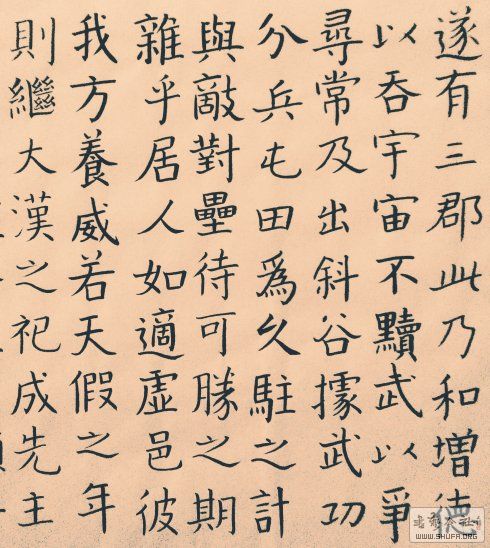 遂有三郡此乃和增德
以吞宇宙不黷武以爭
尋常及出斜谷據武功
分兵屯田爲久駐之計
與敵對壘待可勝之期
雜乎居人如適虛邑彼
我方養威若天假之年
則繼大漢之祀成先主
WWW.SHUFA.ORG